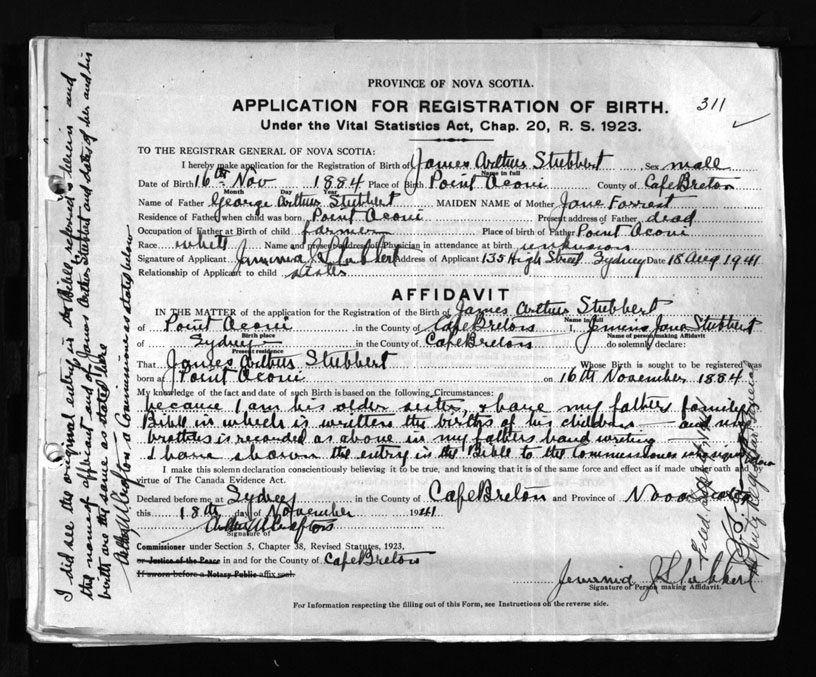 PROVINCE OF NOVA SCOTIA.
APPLICATION FOR REGISTRATION OF BIRTH. 311
Under the Vital Statistics Act, Chap. 20, R. S. 1923.
TO THE REGISTRAR GENERAL OF NOVA SCOTIA:
I hereby make application for the Registration of Birth of James Arthur Stubbert Sex male
Name in full
Date of Birth 16th Nov 1884 Place of Birth Point Aconi County of Cape Breton
Month Day Year
Name of Father George Arthur Stubbert MAIDEN NAME of Mother Jane Forrest
Residence of Father when child was born, Point Aconi Present address of Father dead
Occupation of Father at Birth of child farmer Place of birth of Father Point Aconi
Race white Name and present address of Physician in attendance at birth unknown
Signature of Applicant Jemima J Stubbert Address of Applicant 135 High Street Sydney Date 18 Aug 1941
Relationship of Applicant to child sister
AFFIDAVIT
IN THE MATTER of the application for the Registration of the Birth of James Arthur Stubbert
Name in full
of Point Aconi in the County of Cape Breton I, Jemima Jane Stubbert
Birth place Name of person making Affidavit
of Sydney in the County of Cape Breton do solemnly declare:
Present residence
That James Arthur Stubbert Whose Birth is sought to be registered was
born at Point Aconi on 16th November 1884
My knowledge of the fact and date of such Birth is based on the following Circumstances:
because I am his older sister, & have my fathers family
Bible in which is written the births of his children and my
brothers is recorded as above in my fathers hand writing
I have shown the entry in the Bible to the Commissioner
I make this solemn declaration conscientiously believing it to be true, and knowing that it is of the same force and effect as if made under oath and by
virtue of The Canada Evidence Act.
Declared before me at Sydney in the County of Cape Breton and Province of Nova Scotia
this 18th day of November 1941
Signature of
Commissioner under Section 5, Chapter 38, Revised Statutes, 1923,
or Justice of the Peace in and for the County of Cape Breton
If sworn before a Notary Public affix seal.
Jemima J Stubbert
Signature of Person making Affidavit.
For Information respecting the filling out of this Form, see Instructions on the reverse side.
I did see the original entry in the Bible referred to herein and
the names of applicant and of James Arthur Stubbert and dates of her and his
birth are the same as stated here
a Commissioner as stated below